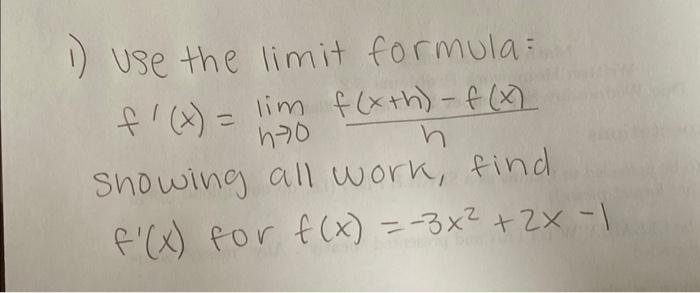 1) Use the limit formula:
f'(x) = lim h→0 f(x+h) - f(x) / h
showing all work, find
f'(x) for f(x) = -3x² + 2x - 1